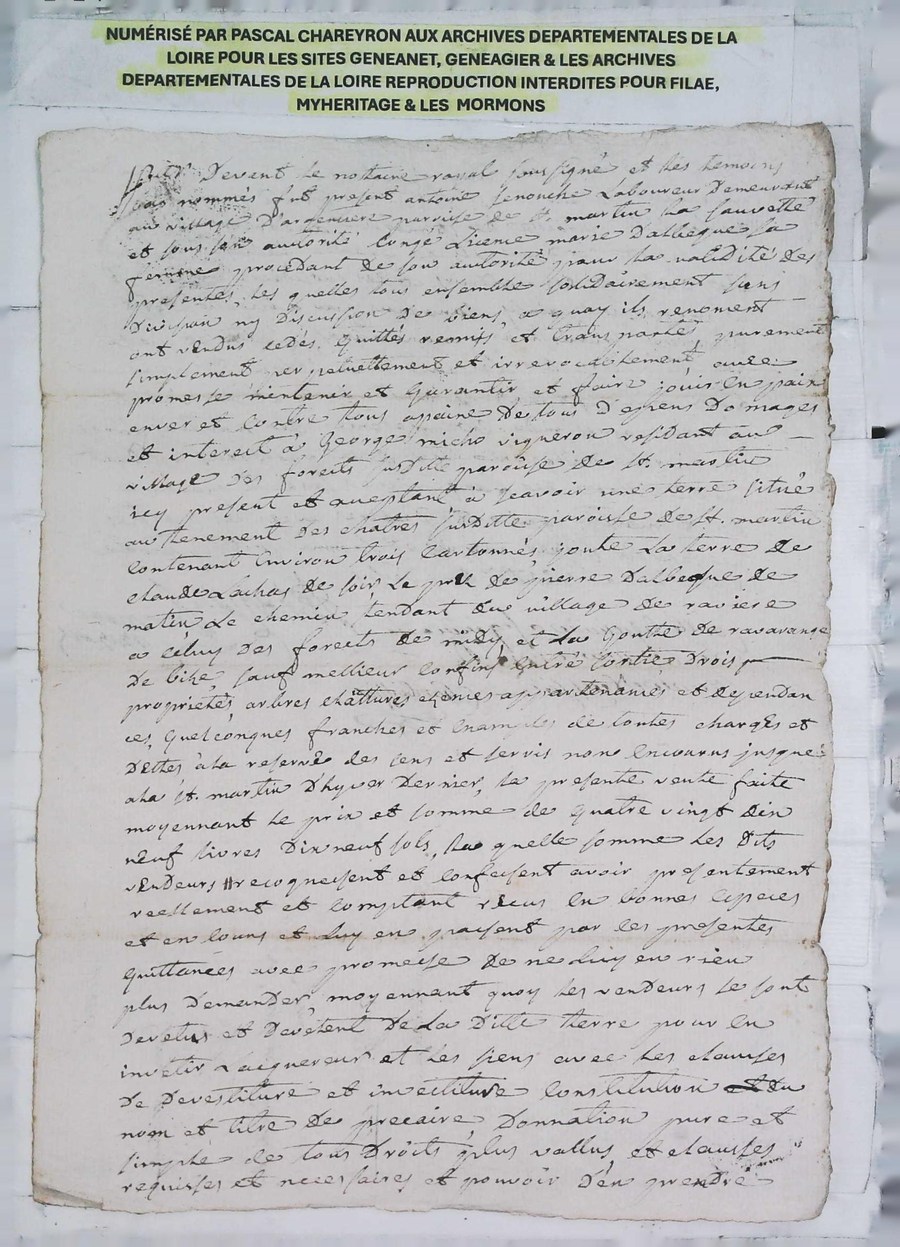 NUMÉRISÉ PAR PASCAL CHAREYRON AUX ARCHIVES DEPARTEMENTALES DE LA
LOIRE POUR LES SITES GENEANET, GENEAGIER & LES ARCHIVES
DEPARTEMENTALES DE LA LOIRE REPRODUCTION INTERDITES POUR FILAE,
MYHERITAGE & LES MORMONS
Devant le notaire royal soussigné et les temoins
bas nommés fut present antoine Laboureur Demeurant
au village D'argentiere parroise de st. martin la sauvetté
et sous son autorité congé Licence marie Dalbegue sa
femme procedant de son autorité pour la validité des
presentes, les quelles tous ensemble solidairement sans
Division ny Discussion De biens a quoy ils renoncent
ont vendus cedés quittés remis et transporté purement
simplement perpetuellement et irrevocablement avec
promesse mintenir et Garantir et faire jouir en paix
enver et contre tous apeine De tous Depens Domages
et interest à George micho vigneron residant au
village Des forests susditte paroisse De st. martin
icy present et aceptant à scavoir une terre situé
au tenement Des chatres susditte paroisse De st. martin
contenant Environ trois Cartonnés joute La terre De
claude Lachas de soir Le pré De pierre Dalbegue de
matin Le chemin tendant du village De raviere
a celuy Des forests De midy et La Goutte De ravarange
De bize sauf meillieur confins Entré sortie Drois
proprietés arbres chattures appartenances et dependan
ces, quelconques franches et de toutes charges et
Dettes à la reserve des sens et servis non jusques
ala st. martin Dhyver Dernier, la presente vente faite
moyennant le prix et somme de quatre vingt dix
neuf livres Dix neuf sols, La quelle somme les Dits
vendeurs recognoissent et confessent avoir presentement
reellement et comptant recus En bonnes especes
et en cours et Luy en passent par les presentes
quittances avec promesse De ne luy en rien
plus Demander moyennant quoy les vendeurs se sont
Devetus et Devêtent De La Ditte terre pour En
invetir L'aiquereur et Les siens avec Les clauses
De Devestiture et investiture constitution du
nom et titre De precaire Donnation pure et
simple de tous Droits plus vallus et clauses
requises et necessaires et pouvoir D'en prendre